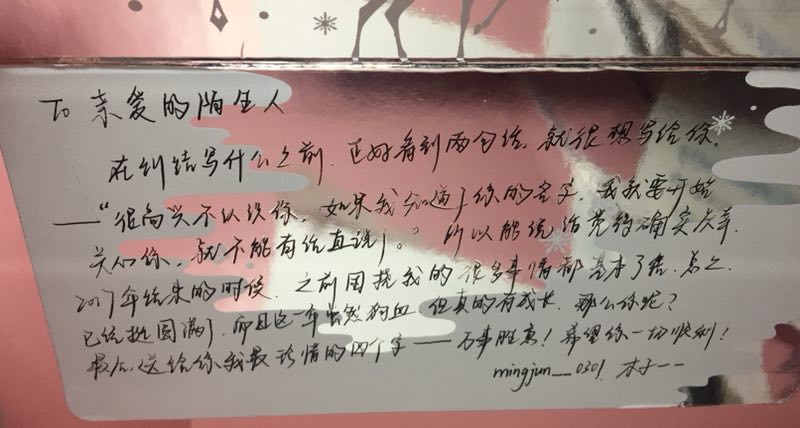 To 亲爱的陌生人
在纠结写什么之前,正好看到两句话,就很想写给你.
——“很高兴不认识你,如果我知道了你的名字,我就要开始
关心你,就不能有话直说了。” 所以能统话
2017年结束的时候,之前困扰我的很多事情都基本了结,总之,
已经挺圆满了,而且这一年虽然狗血,但真的有成长,那么你呢?
最后,送给你我最珍惜的四个字——万事胜意!希望你一切顺利!
mingjun__0301. 木子一一